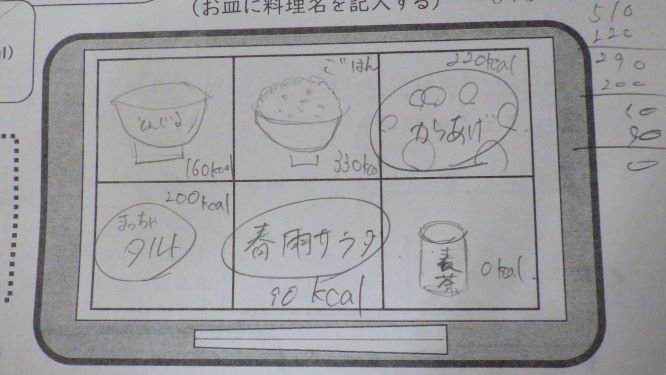 (お皿に料理名を記入する)
とんじる
160kcal
ごはん
330kcal
220kcal
からあげ
200kcal
まっちゃ
タルト
春雨サラダ
90 kcal
麦茶
0kcal
510
120
290
200
10
90
0